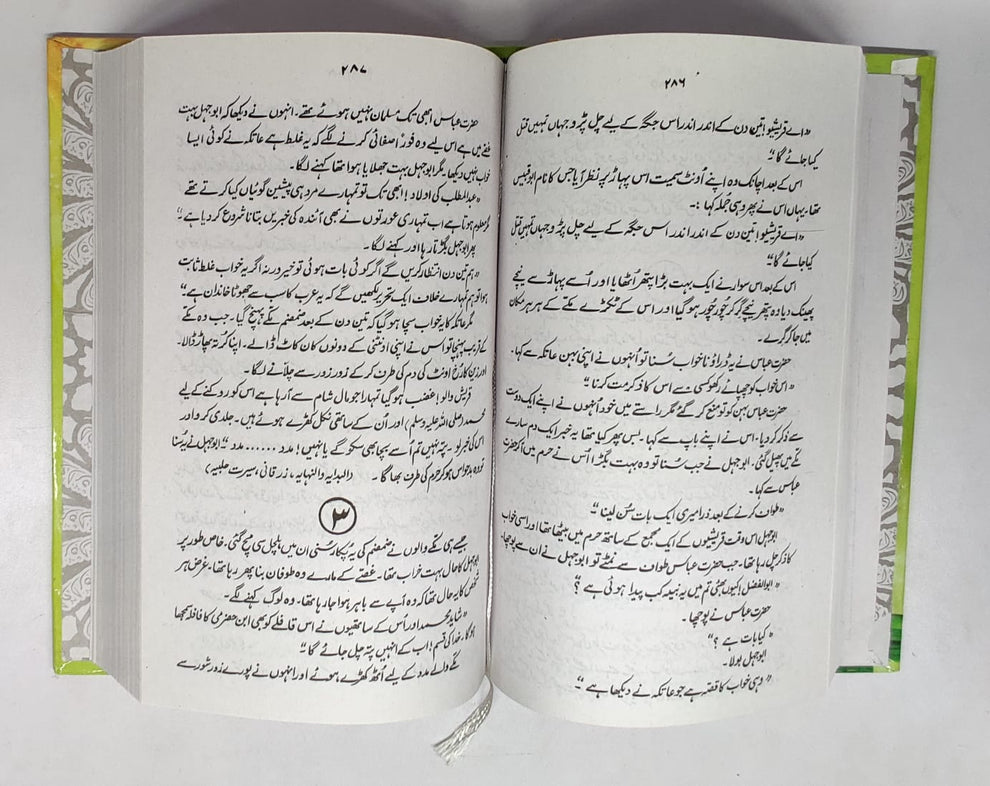 ۲۸۶
"اے قریشیو! تین دن کے اندر اندر اس جگہ کے لیے چل پڑو جہاں تمہیں قتل
کیا جائے گا"
اس کے بعد اچانک وہ اپنے اونٹ سمیت اس پہاڑ پہ نظر آیا جس کا نام ابوقبیس
تھا۔ یہاں اس نے پھر وہی جملہ کہا :۔
"اے قریشیو! تین دن کے اندر اندر اس جگہ کے لیے چل پڑو جہاں تمہیں قتل
کیا جائے گا"
اس کے بعد اس سوار نے ایک بہت بڑا پتھر اُٹھایا اور اُسے پہاڑ سے نیچے
پھینک دیا وہ پتھر نیچے گر کر چُور چُور ہو گیا اور اس کے ٹکڑے مکے کے ہر ہر مکان
میں جا کر گرے۔
حضرت عباس نے یہ ڈراؤنا خواب سُنا تو اُنہوں نے اپنی بہن عاتکہ سے کہا۔
"اس خواب کو چھپائے رکھو کسی سے اس کا ذکر مت کرنا"
حضرت عباس بہن کو تو منع کر گئے مگر راستے میں خود اُنہوں نے اپنے ایک دوست
سے ذکر کر دیا۔ اس نے اپنے باپ سے کہا۔ بس پھر کیا تھا یہ خبر ایک دم سارے
مکے میں پھیل گئی۔ ابوجہل نے جب سُنا تو وہ بہت بگڑا اُس نے حرم میں آکر حضرت
عباس سے کہا۔
"طواف کرنے کے بعد ذرا میری ایک بات سُن لینا"
ابوجہل اس وقت قریشیوں کے ایک مجمع کے ساتھ حرم میں بیٹھا تھا اور اسی خواب
کا ذکر چل رہا تھا۔ جب حضرت عباس طواف سے نمٹے تو ابوجہل نے ان سے پوچھا۔
"ابوالفضل! کیوں بھئی تم میں یہ نبیہ کب پیدا ہوئی ہے ؟"
حضرت عباس نے پوچھا۔
"کیا بات ہے ؟"
ابوجہل بولا۔
"وہی خواب کا قصہ ہے جو عاتکہ نے دیکھا ہے"
۲۸۷
حضرت عباس ابھی تک مسلمان نہیں ہوئے تھے۔ انہوں نے دیکھا کہ ابوجہل بہت
غصے میں ہے اس لیے وہ فوراً صفائی کرنے لگے کہ یہ غلط ہے عاتکہ نے کوئی ایسا
خواب نہیں دیکھا۔ مگر ابوجہل بہت جھلایا ہوا تھا کہنے لگا۔
"عبدالمطلب کی اولاد! ابھی تک تو تمہارے مرد ہی پیشین گوئیاں کیا کرتے تھے
مگر معلوم ہوتا ہے اب تمہاری عورتوں نے بھی آئندہ کی خبریں بتانا شروع کر دیا ہے"
پھر ابوجہل بگڑتا رہا اور کہنے لگا۔
"ہم تین دن انتظار کریں گے اگر کوئی بات ہوئی تو خیر ورنہ اگر یہ خواب غلط ثابت
ہوا تو ہم تمہارے خلاف ایک تحریر لکھیں گے کہ یہ عرب کا سب سے جھوٹا خاندان ہے"
مگر عاتکہ کا یہ خواب سچا ہو گیا کہ تین دن کے بعد ضمضم مکے پہنچ گیا۔ جب وہ مکے
کے قریب پہنچا تو اس نے اپنی اونٹنی کے دونوں کان کاٹ ڈالے۔ اپنا کُرتہ پھاڑ ڈالا۔
اور زین کا رُخ اونٹ کی دم کی طرف کر کے زور زور سے چلانے لگا۔
قریش والو! غضب ہو گیا تمہارا جو مال شام سے آ رہا ہے اس کو روکنے کے لیے
محمد (صلی اللہ علیہ وسلم) اور اُن کے ساتھی نکل کھڑے ہوئے ہیں۔ جلدی کرو اور
اس کی خبر لو۔ پتہ نہیں تم اُسے بچا بھی سکو گے یا نہیں! مدد ...... مدد" ابوجہل نے یہ سُنا
تو وہ بدحواس ہو کر حرم کی طرف بھاگا۔ (البدایہ والنہایہ، زرقانی، سیرت حلبیہ)
۳
جیسے ہی مکے والوں نے ضمضم کی یہ پُکار سُنی ان میں ہلچل سی مچ گئی۔ خاص طور پر
ابوجہل کا حال بہت خراب تھا۔ غصے کے مارے وہ طوفان بنا پھر رہا تھا۔ غرض ہر
شخص کا یہ حال تھا کہ وہ آپے سے باہر ہوا جا رہا تھا۔ وہ لوگ کہنے لگے۔
"شاید محمد اور اُس کے ساتھیوں نے اس قافلے کو بھی ابن حضرمی کا قافلہ سمجھا
ہوگا۔ خدا کی قسم! اب کے انہیں پتہ چل جائے گا"
مکے والے مدد کے لیے اُٹھ کھڑے ہوئے اور انہوں نے پورے زور شور سے